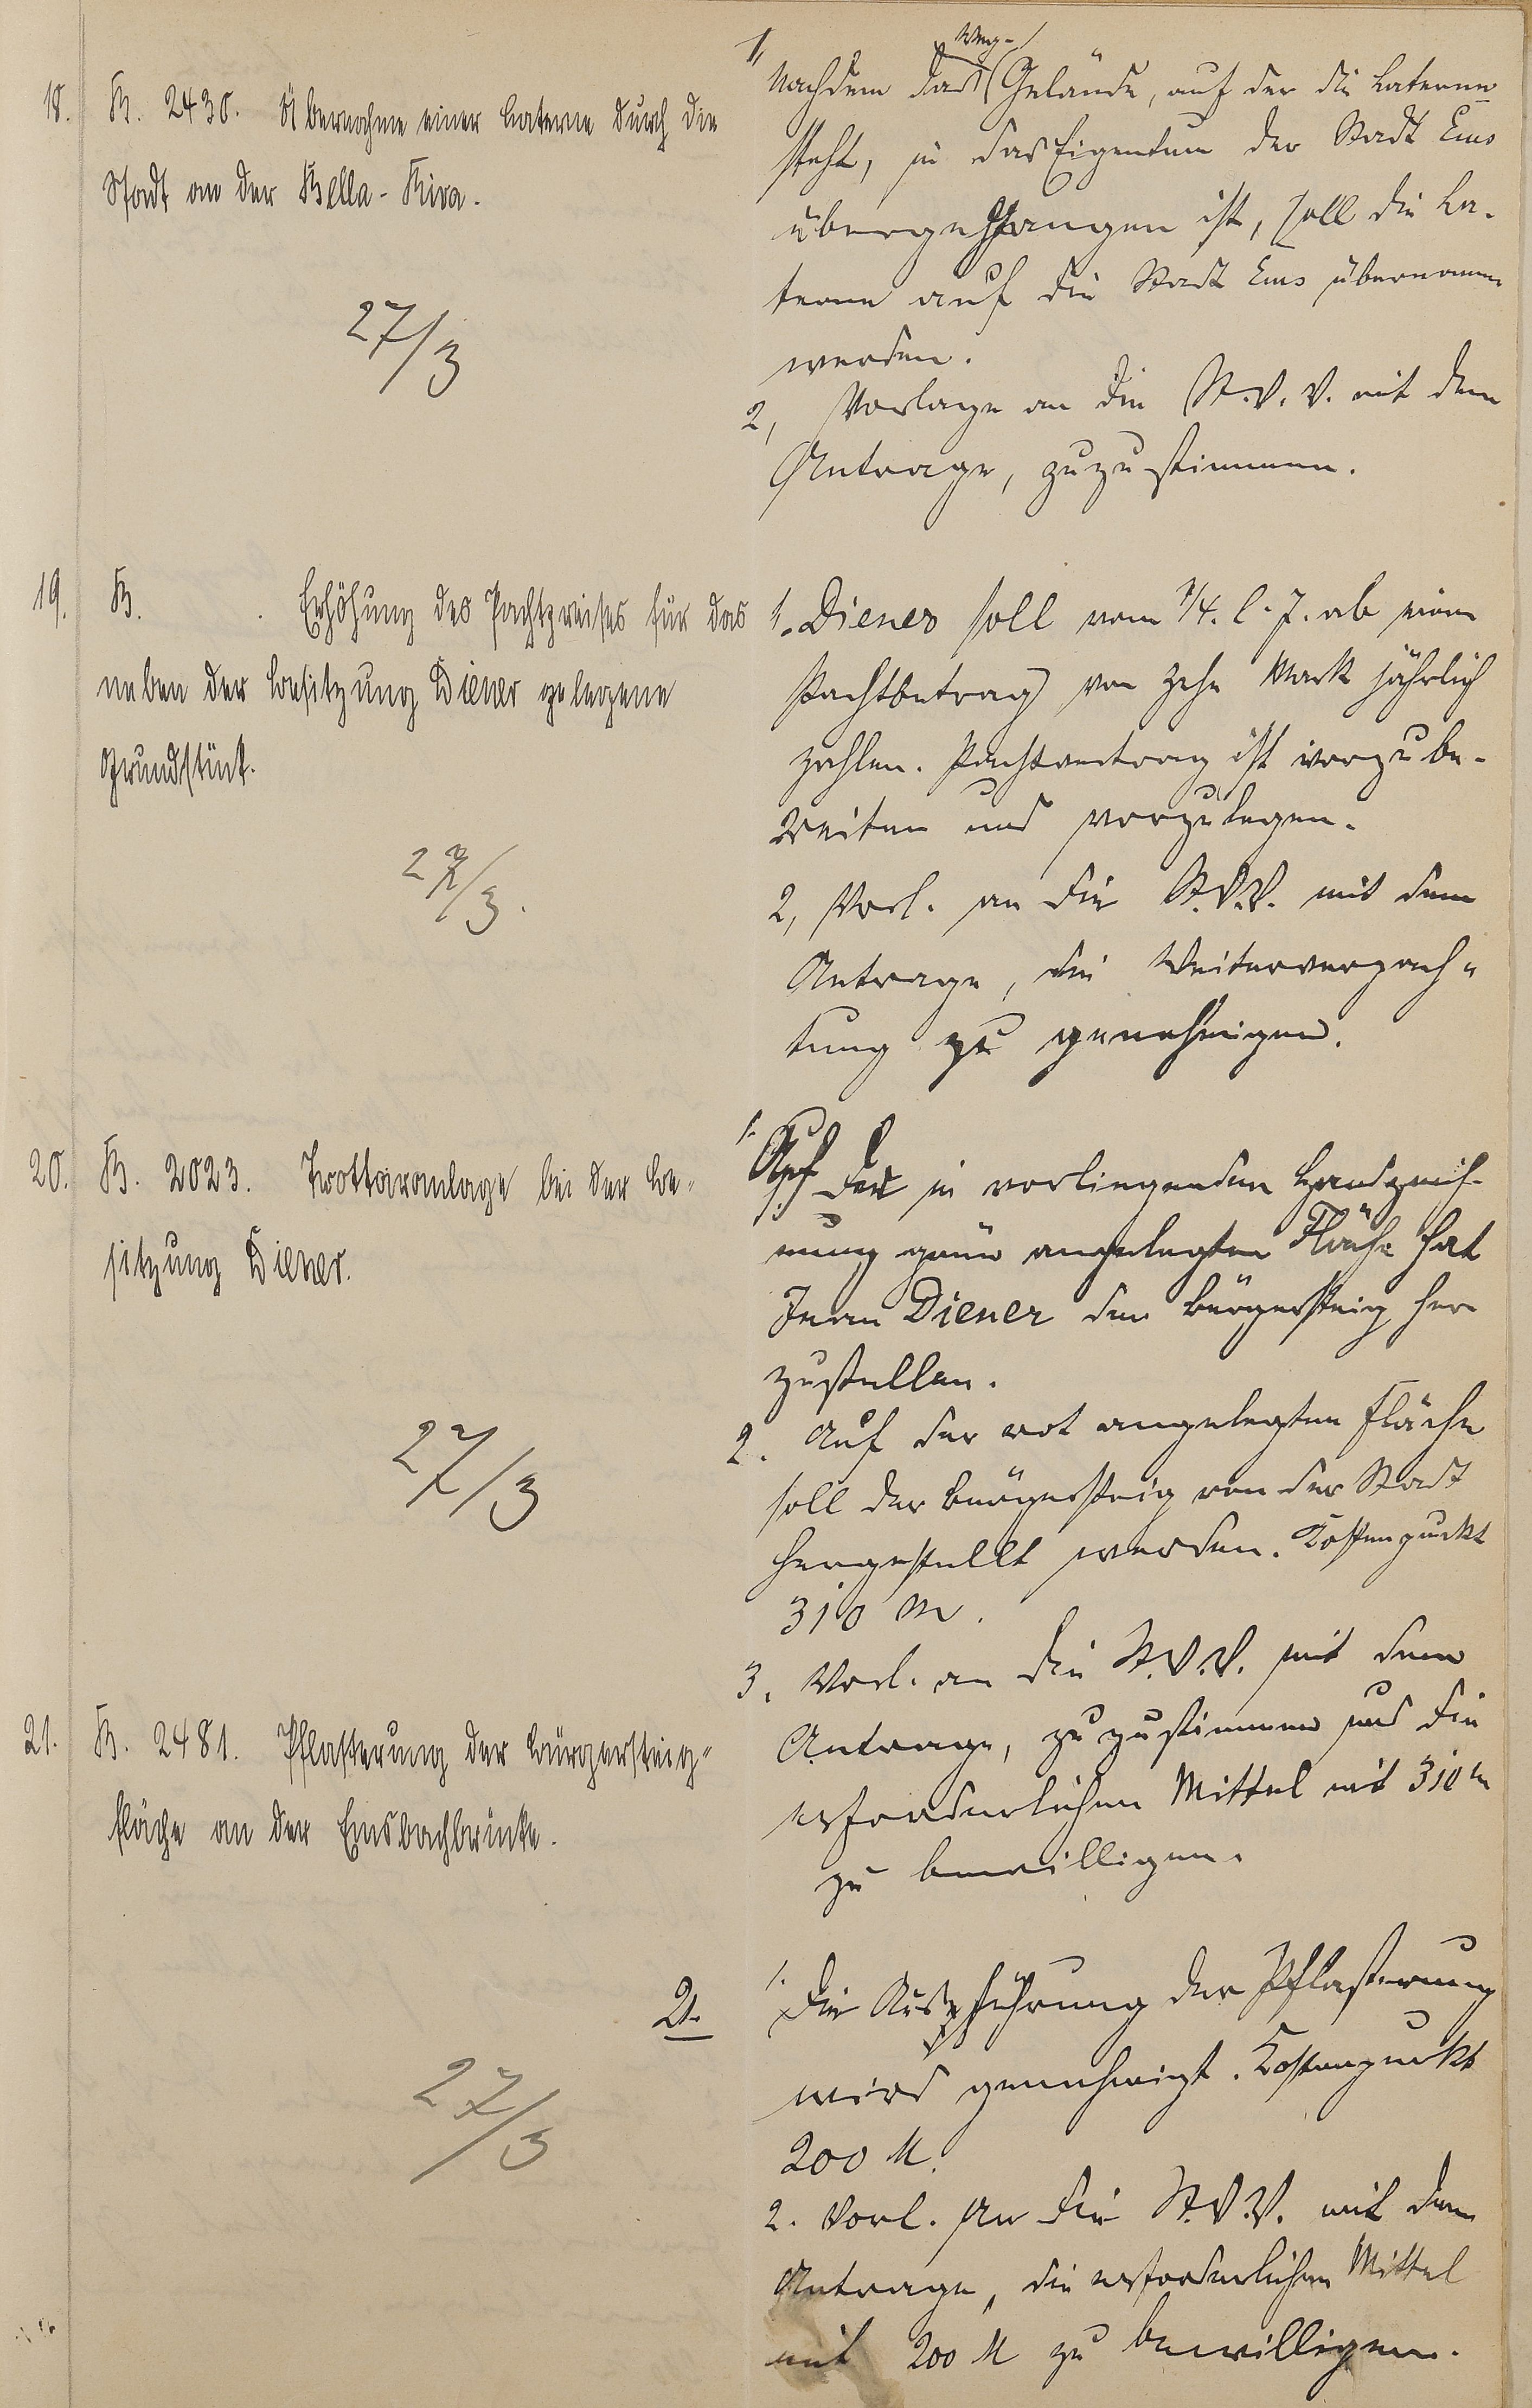 18. B. 2430. Übernahme einer Laterne durch die
Stadt an der Bella-Riva.
27/3
1, Nachdem das Weg-
Gelände, auf der die Laterne
steht, in das Eigentum der Stadt Ems
übergegangen ist, soll die La-
terne auf die Stadt Ems übernommen
werden.
2, Vorlage an die St.V.V. mit dem
Antrage, zuzustimmen.
19. B. Erhöhung des Pachtpreises für das
neben der Besitzung Diener gelegene
Grundstück.
27/3.
1. Diener soll vom 1/4. l. J. ab einen
Pachtbetrag von zehn Mark jährlich
zahlen. Pachtvertrag ist vorzube-
reiten und vorzulegen.
2, Vorl. an die St.V.V. mit dem
Antrage, die Weiterverpach-
tung zu genehmigen.
20. B. 2023. Trottoranlage bei der Be-
sitzung Diener.
27/3
1. Auf der in vorliegender Handzeich-
nung grün angelegten Fläche hat
Jean Diener den Bürgersteig her
zustellen.
2. Auf der rot angelegten Fläche
soll der Bürgersteig von der Stadt
hergestellt werden. Kostenpunkt
310 M.
3. Vorl. an die St.V.V. mit dem
Antrage, zuzustimmen und die
erforderlichen Mittel mit 310 M
zu bewilligen.
21. B. 2481. Pflasterung der Bürgersteig-
fläche an der Emsbachbrücke.
27/3
1. Die Ausführung der Pflasterung
wird genehmigt. Kostenpunkt
200 M.
2. Vorl. an die St.V.V. mit dem
Antrage, die erforderlichen Mittel
mit 200 M zu bewilligen.